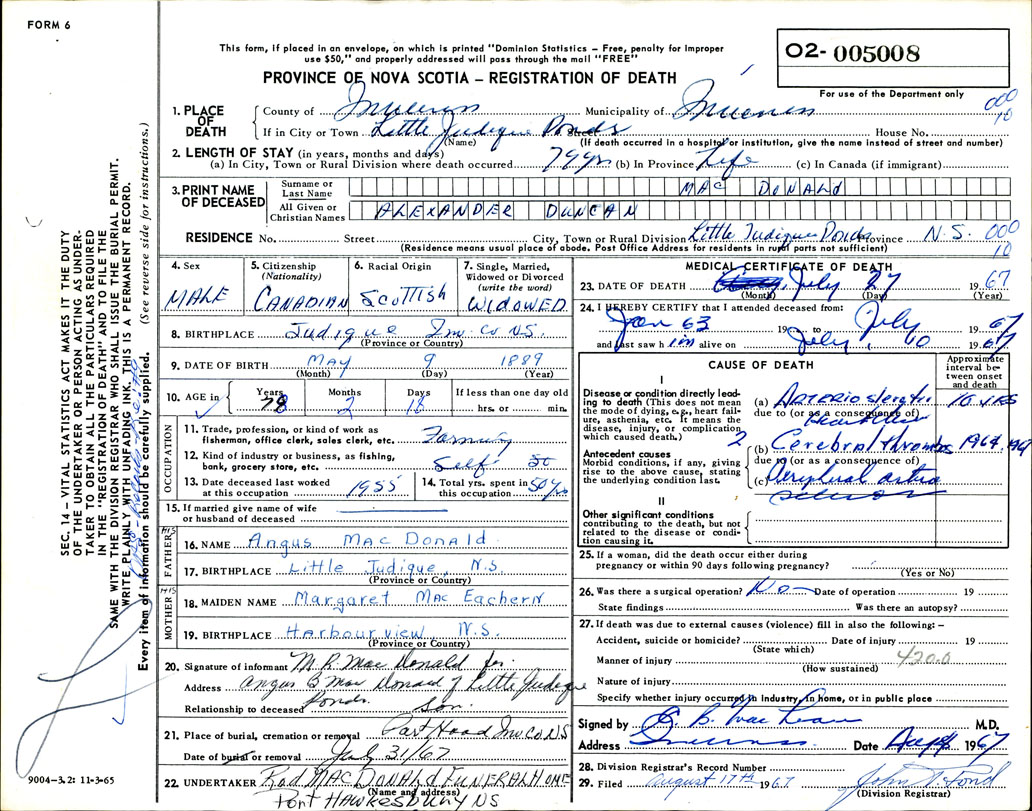 FORM 6
This form, if placed in an envelope, on which is printed "Dominion Statistics – Free, penalty for improper
use $50," and properly addressed will pass through the mail "FREE"
O2- 005008
PROVINCE OF NOVA SCOTIA – REGISTRATION OF DEATH
For use of the Department only
1. PLACE OF DEATH
County of Inverness Municipality of Inverness
000
10
If in City or Town Little Judique Ponds Street House No.
(Name) (If death occurred in a hospital or institution, give the name instead of street and number)
2. LENGTH OF STAY (in years, months and days)
(a) In City, Town or Rural Division where death occurred 79 yrs (b) In Province Life (c) In Canada (if immigrant)
3. PRINT NAME OF DECEASED
Surname or Last Name MAC DONALD
All Given or Christian Names ALEXANDER DUNCAN
RESIDENCE No. Street City, Town or Rural Division Little Judique Ponds Province N.S. 000
(Residence means usual place of abode. Post Office Address for residents in rural parts not sufficient) 10
4. Sex
MALE
5. Citizenship (Nationality)
CANADIAN
6. Racial Origin
Scottish
7. Single, Married, Widowed or Divorced (write the word)
WIDOWED
8. BIRTHPLACE Judique Inv. Co N.S.
(Province or Country)
9. DATE OF BIRTH MAY 9 1889
(Month) (Day) (Year)
10. AGE in Years 78 Months 2 Days 18 If less than one day old
hrs. or min.
OCCUPATION
11. Trade, profession, or kind of work as
fisherman, office clerk, sales clerk, etc. Farming
12. Kind of industry or business, as fishing,
bank, grocery store, etc. Self
13. Date deceased last worked
at this occupation 1955
14. Total yrs. spent in
this occupation 50 yrs
15. If married give name of wife
or husband of deceased
HIS FATHER
16. NAME Angus MacDonald
17. BIRTHPLACE Little Judique, N.S
(Province or Country)
HIS MOTHER
18. MAIDEN NAME Margaret MacEachern
19. BIRTHPLACE Harbourview, N.S.
(Province or Country)
20. Signature of informant M.R. MacDonald for.
Address Angus B MacDonald Little Judique
Ponds.
Relationship to deceased Son.
21. Place of burial, cremation or removal Port Hood Inv. Co. N.S
Date of burial or removal July 31/67
22. UNDERTAKER Rod MACDONALD FUNERAL HOME
(Name and address)
Port HAWKESBURY NS
MEDICAL CERTIFICATE OF DEATH
23. DATE OF DEATH July 27 1967
(Month) (Day) (Year)
24. I HEREBY CERTIFY that I attended deceased from:
Jan 63 19 to July 1967
and last saw him alive on July 10 1967
CAUSE OF DEATH
Approximate interval between onset and death
I
Disease or condition directly leading to death (This does not mean the mode of dying, e.g., heart failure, asthenia, etc. It means the disease, injury, or complication which caused death.)
(a) Arteriosclerotic
due to (or as a consequence of)
10 yrs
Antecedent causes
Morbid conditions, if any, giving rise to the above cause, stating the underlying condition last.
2
(b) Cerebral thrombosis 1964
due to (or as a consequence of)
(c) Peripheral
II
Other significant conditions
contributing to the death, but not related to the disease or condition causing it.
25. If a woman, did the death occur either during
pregnancy or within 90 days following pregnancy?
(Yes or No)
26. Was there a surgical operation? No Date of operation 19
State findings Was there an autopsy?
27. If death was due to external causes (violence) fill in also the following: –
Accident, suicide or homicide? Date of injury 19
(State which)
Manner of injury 420.0
(How sustained)
Nature of injury
Specify whether injury occurred in industry, in home, or in public place
Signed by B. MacLean M.D.
Address Inverness Date 1967
28. Division Registrar's Record Number
29. Filed August 17th 1967
(Division Registrar)
SEC. 14 – VITAL STATISTICS ACT MAKES IT THE DUTY
OF THE UNDERTAKER OR PERSON ACTING AS UNDERTAKER TO OBTAIN ALL THE PARTICULARS REQUIRED
IN THE "REGISTRATION OF DEATH" AND TO FILE THE
SAME WITH THE DIVISION REGISTRAR WHO SHALL ISSUE THE BURIAL PERMIT.
WRITE PLAINLY WITH UNFADING INK. THIS IS A PERMANENT RECORD.
Every item of information should be carefully supplied. (See reverse side for instructions.)
9004-3.2: 11-3-65